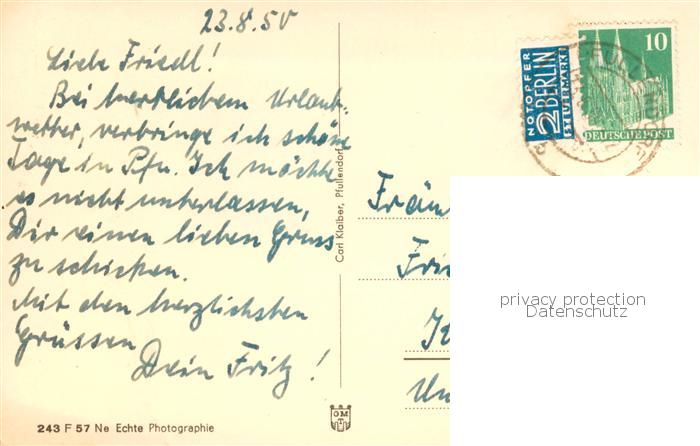 23.8.50
Liebe Friedl!
Bei herrlichem Urlaubs-
wetter, verbringe ich schöne
Tage in Pfn. Ich möchte
es nicht unterlassen,
Dir einen lieben Gruss
zu schicken.
Mit den herzlichsten
Grüssen
Dein Fritz!
243 F 57 Ne Echte Photographie
Carl Klaiber, Pfullendorf
GM
NOTOPFER
2 BERLIN
STEUERMARKE
10
DEUTSCHE POST
PFULLENDORF
Fräu
Frie
Un
privacy protection
Datenschutz